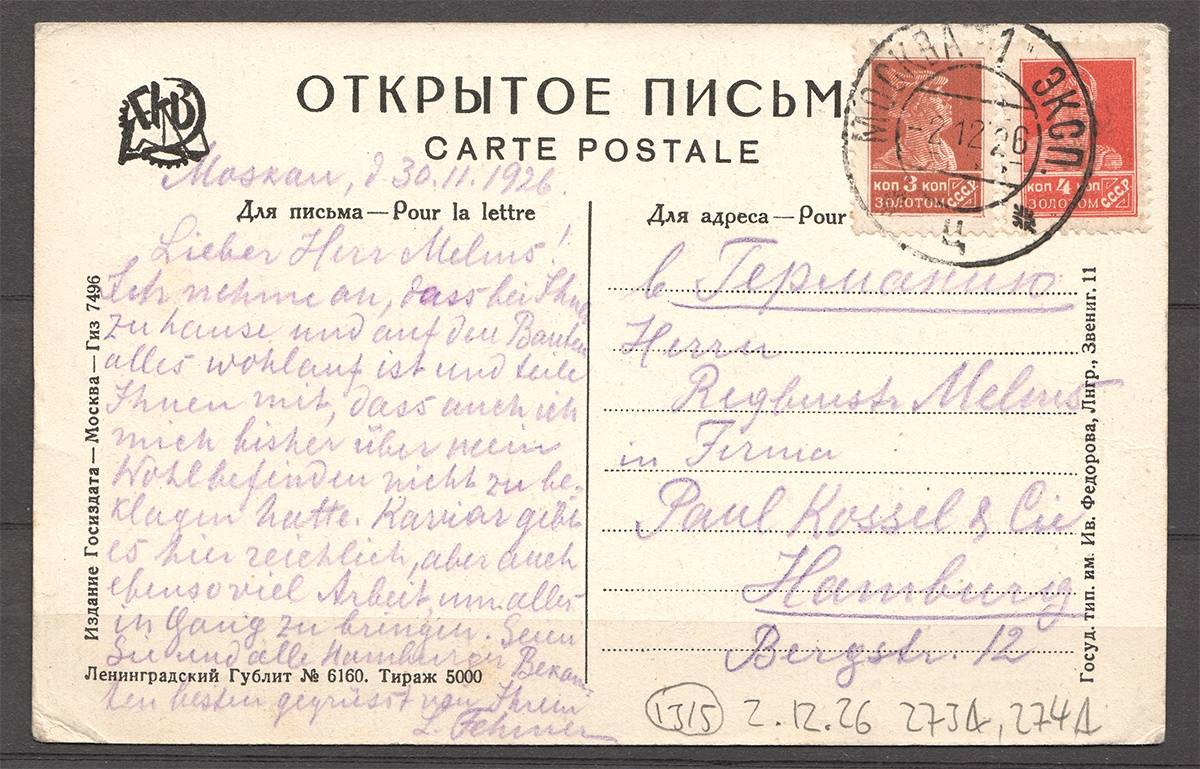 ОТКРЫТОЕ ПИСЬМ
CARTE POSTALE
МОСКВА 1 ЭКСП.
-2.12.26
Ц
КОП 3 КОП
ЗОЛОТОМ С.С.С.Р
КОП 4 КОП
ЗОЛОТОМ С.С.С.Р
Moskau, d 30.11.1926.
Для письма — Pour la lettre
Lieber Herr Melms!
Ich nehme an, dass bei Ihnen
zu hause und auf den Bauten
alles wohlauf ist und teile
Ihnen mit, dass auch ich
mich bisher über mein
Wohlbefinden nicht zu be-
klagen hatte. gibt
es hier reichlich, aber auch
ebensoviel Arbeit, um alles
in Gang zu bringen. Seien
Sie und alle Hamburger Bekan-
ten bestens gegrüsst von Ihrem
Для адреса — Pour
в Германию
Herrn
Regbmstr Melms
in Firma
Paul Kossel & Cie
Hamburg
Bergstr. 12
Издание Госиздата — Москва — Гиз 7496
Ленинградский Гублит № 6160. Тираж 5000
Госуд. тип. им. Ив. Федорова, Лнгр., Звениг. 11
1315 2.12.26 273A, 274A